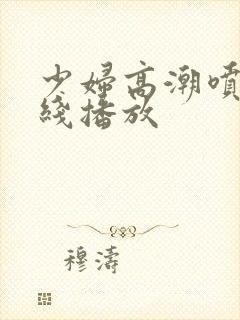 少婦高潮噴
綫播放
穆濤